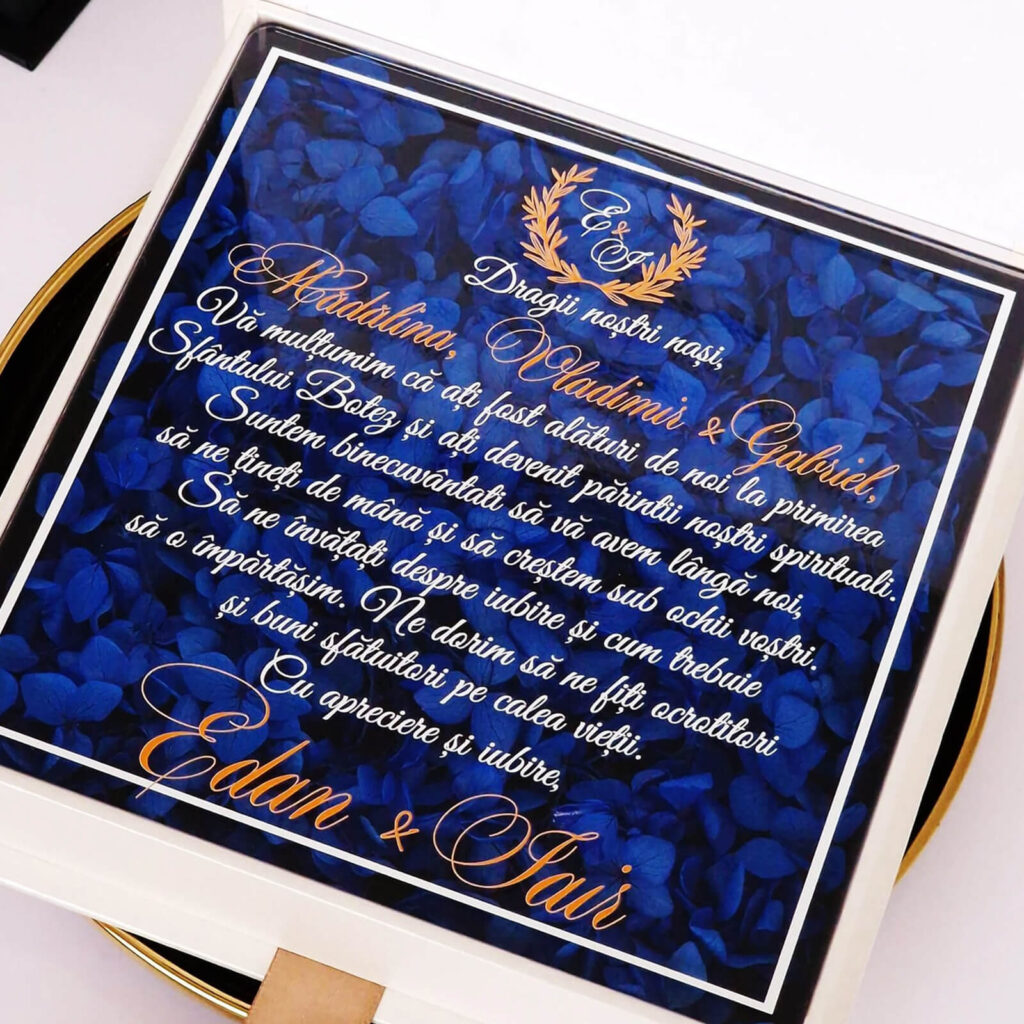 E & I
Dragii noștri nași,
Mădălina, Vladimir & Gabriel,
Vă mulțumim că ați fost alături de noi la primirea
Sfântului Botez și ați devenit părintii noștri spirituali.
Suntem binecuvântati să vă avem lângă noi,
să ne țineți de mână și să creștem sub ochii voștri.
Să ne învățați despre iubire și cum trebuie
să o împărtășim. Ne dorim să ne fiți ocrotitori
și buni sfătuitori pe calea vieții.
Cu apreciere și iubire,
Edan & Iair